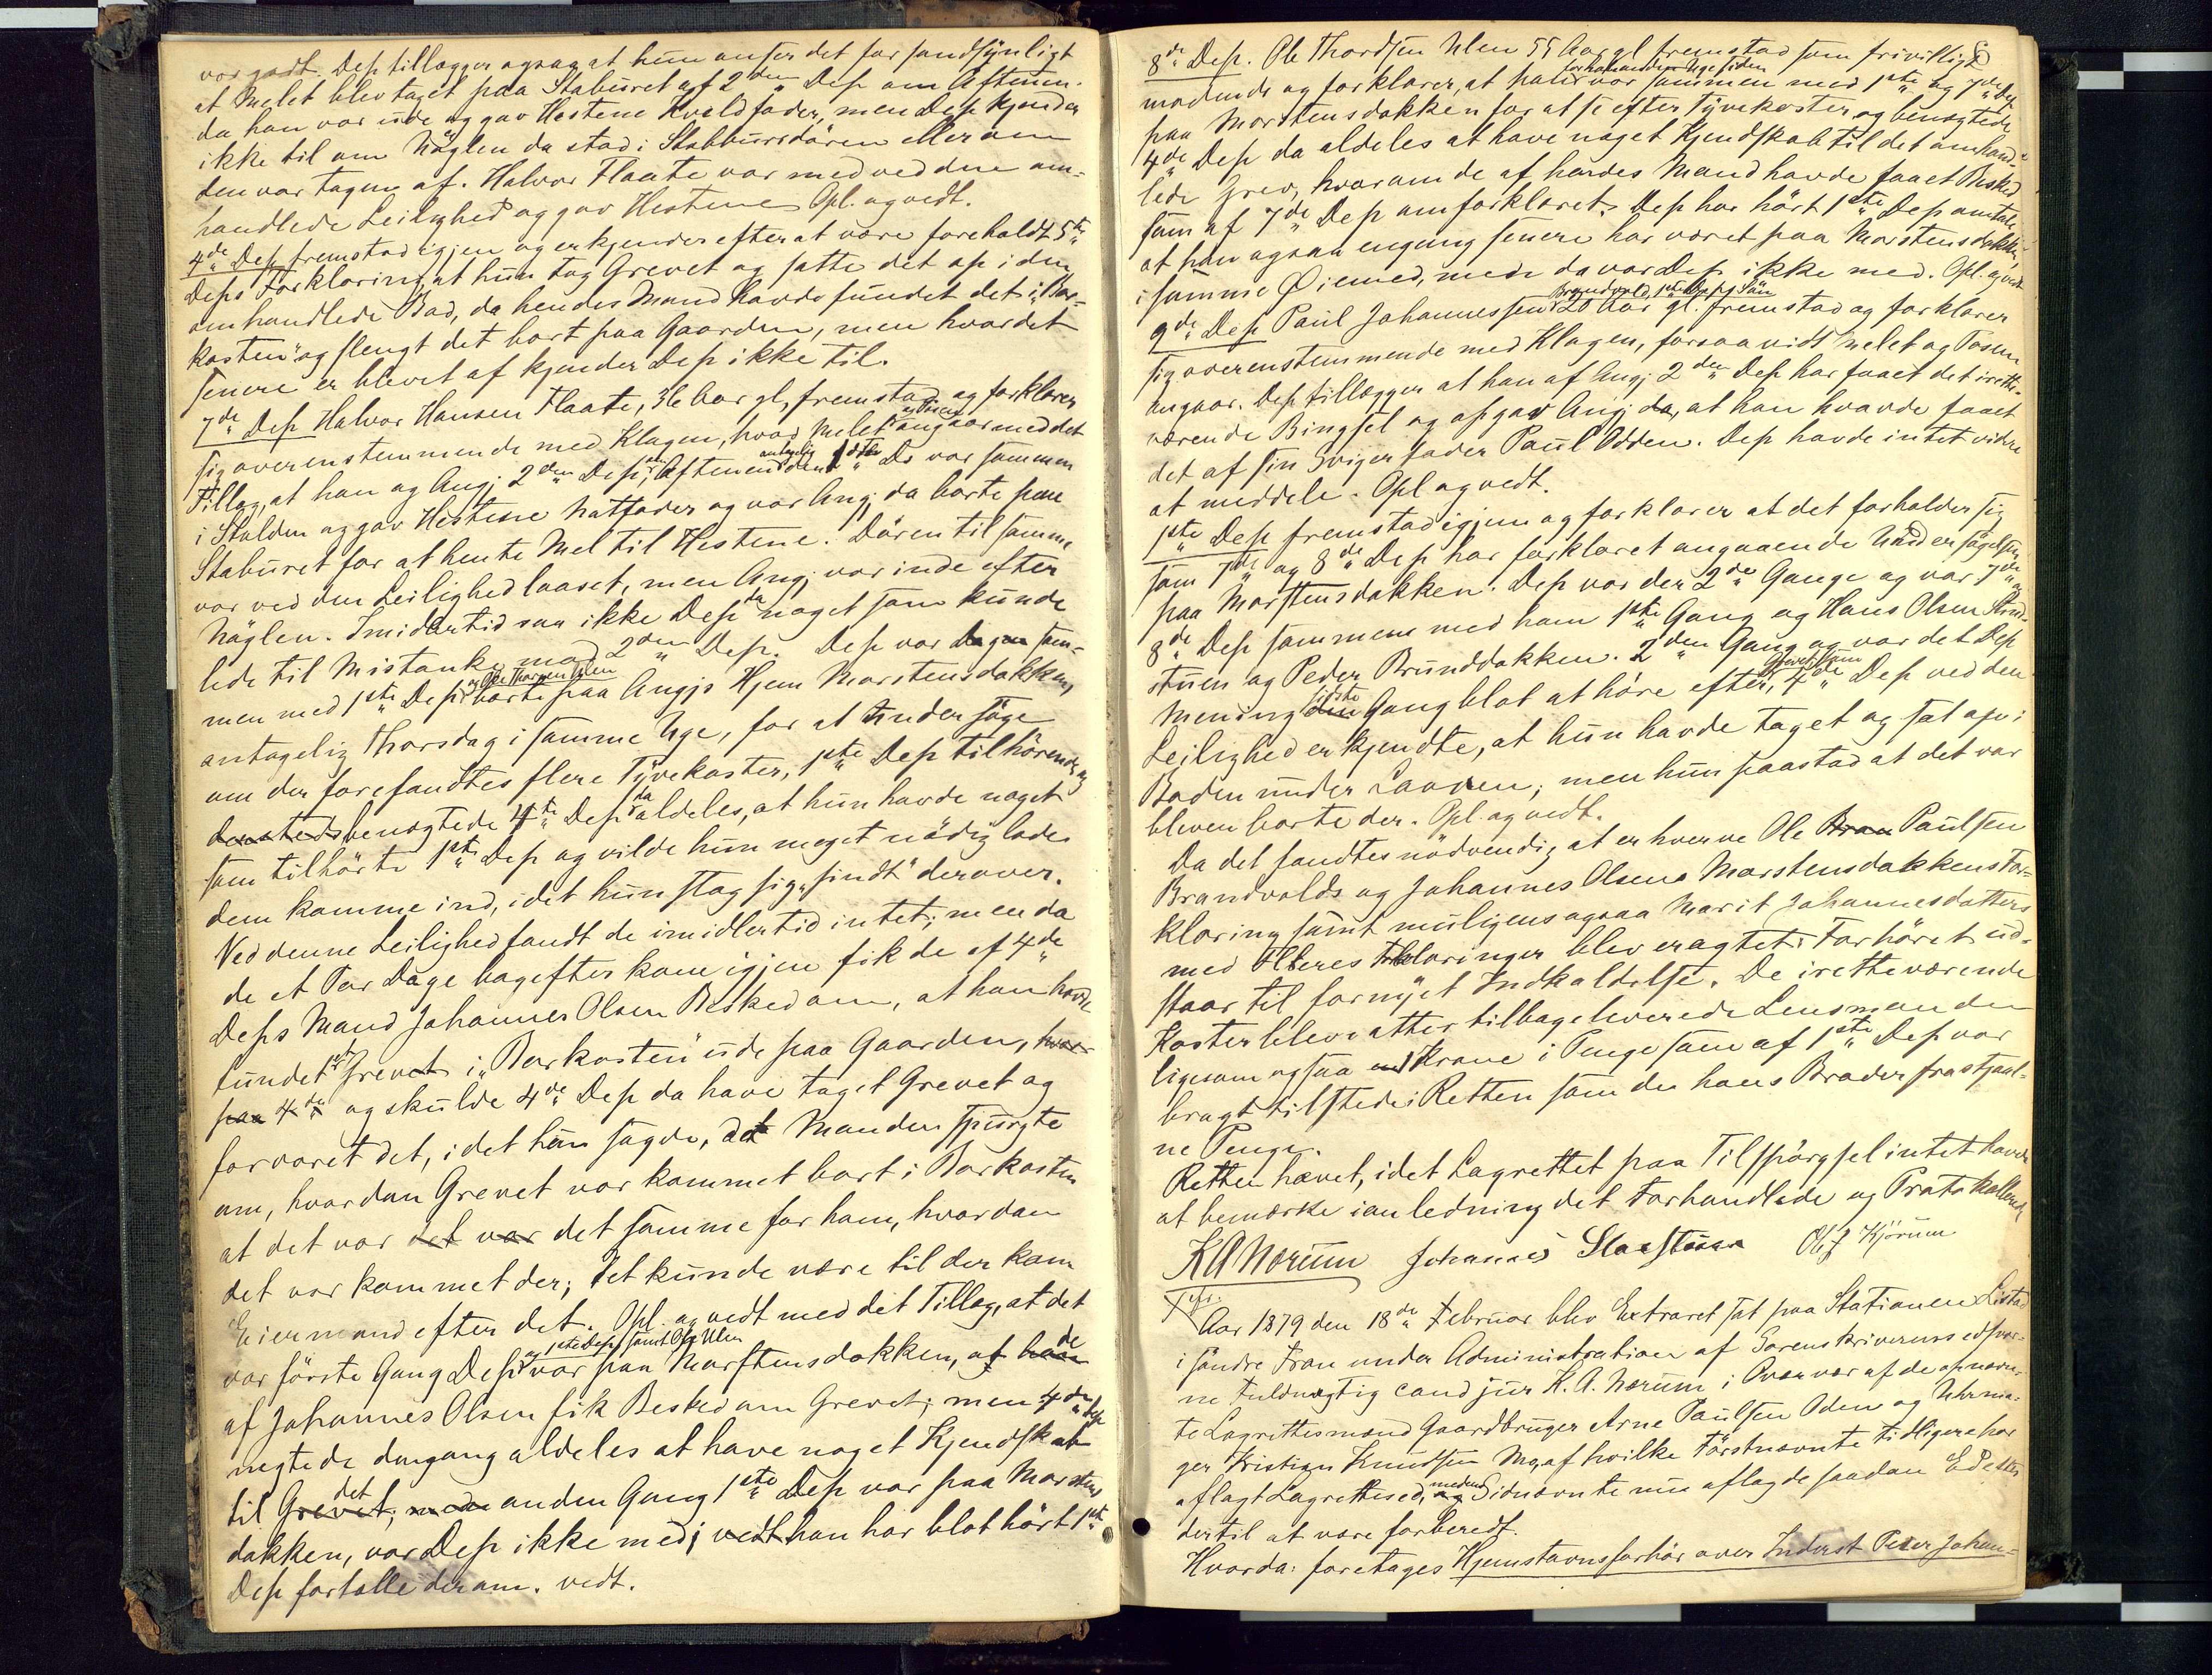 var godt. Dep tillægger ogsaa at hun anser det for sandsynligt
at Melet blev taget paa Staburet af 2den Dep om Aftenen
da han var ude og gav Hestene Kveldfoder, men Dep kjender
ikke til om Nøglen da stod i Stabbursdøren eller om
den var tagen af. Halvor Flaate var med ved den om-
handlede Leilighed og gav Hestene. Opl. og vedt.
4de Dep fremstod igjen og erkjender efter at være foreholdt 5te
Deps Forklaring, at hun tog Grevet og satte det op i den
omhandlede Bod, da hendes Mand havde fundet det i "Bar-
kosten" og slengt det bort paa Gaarden, men hvor det
senere er blevet af kjender Dep ikke til.
7de Dep Halvor Hansen Flaate, 36 Aar gl, fremstod og forklarer
sig overenstemmende med Klagen, hvad Melet og Posen angaar med det
Tillæg, at han og Ang. 2den Dep, om Aftenen antagelig den 1ste Ds var sammen
i Stalden og gav Hestene Natfoder og var Ang. da borte paa
Staburet for at hente Mel til Hestene. Døren til samme
var ved den Leilighed laaset, men Ang. var inde efter
Nøglen. Imidlertid saa ikke Dep da noget som kunde
lede til Mistanke mod 2den Dep. Dep var Dagen sam-
men med 1ste Dep og Ole Thorsen Ulen borte paa Angjs Hjem Morstensdokken,
antagelig Thorsdag i samme Uge, for at undersøge
om der forefandtes flere Tyvekoster, 1ste Dep tilhørende og
densteds benægtede 4de Dep da aldeles, at hun havde noget
som tilhørte 1ste Dep og vilde hun meget nødig lade
dem komme ind, idet hun stog sig "sindt" derover.
Ved denne Leilighed fandt de imidlertid intet; men da
de et Par Dage bagefter kom igjen fik de af 4de
Deps Mand Johannes Olsen Besked om, at han havde
fundet et Grevet i "Barkosten" ude paa Gaarden, hvor
paa 4de og skulde 4de Dep da have taget Grevet og
forvaret det, idet han sagde, at Manden spurgte
om, hvordan Grevet var kommet bort i Barkosten
at det var det var det samme for ham, hvordan
det var kommet der; det kunde være til der kom
Eiermand efter det. Opl. og vedt med det Tillæg, at det
var første Gang Dep og 1ste Dep samt Ole Ulen var paa Morstensdokken, at han de
af Johannes Olsen fik Besked om Grevet; men 4de Dep
negtede dengang aldeles at have noget Kjendskab
til Grevet det, men anden Gang 1ste Dep var paa Morstens
dokken, var Dep ikke med; vedt han har blot hørt 1ste
Dep fortælle derom. vedt.
8de Dep. Ole Thordsen Ulen 55 Aar gl fremstod som frivilligt
mødende og forklarer, at han for halvanden Uge siden var sammen med 1ste og 7de Dep
paa Morstensdokken for at se efter Tyvekoster og benægtede
4de Dep da aldeles at have noget Kjendskab til det omhand-
lede Grev, hvorom de af hendes Mand havde faaet Besked
som af 7de Dep omforklaret. Dep har hørt 1ste Dep omtale,
at han ogsaa engang senere har været paa Morstensdokken
i samme Øiemed, men da var Dep ikke med. Opl. og vedt.
9de Dep Paul Johannessen Brandvold, 1ste Deps Søn 20 Aar gl. fremstod og forklarer
sig overenstemmende med Klagen, forsaavidt Melet og Posen
angaar. Dep tillægger at han af Ang. 2den Dep har faaet det irette-
værende Bingsel og opgav Ang. da, at han havde faaet
det af sin Svigerfader Paul Odden. Dep havde intet videre
at meddele. Opl og vedt.
1ste Dep fremstod igjen og forklarer at det forholder sig
som 7de og 8de Dep har forklaret angaaende Undersøgelsen
paa Morstensdokken. Dep var der 2de Gange og var 7de og
8de Dep sammen med ham 1ste Gang og Hans Olsen
stuen og Peder Brunddokken. 2den Gang og var det Dep
Mening den sidste Gang blot at høre efter Grevet som 4de Dep ved den
Leilighed erkjendte, at hun havde taget og sat op i
Boden under Laaven; men hun paastod at det var
bleven borte der. Opl. og vedt.
Da det fandtes nødvendig at erhverve Ole Bran Paulsen
Brandvolds og Johannes Olsens Morstensdokkens For-
klaring samt muligens ogsaa Marit Johannesdatters
med Fleres Forklaringer blev eragtet: Forhøret ud-
staar til fornyet Indkaldelse. De iretteværende
Koster blev atter tilbageleverede Lensmanden
ligesom ogsaa en Krone i Penge som af 1ste Dep var
bragt tilstede i Retten som de hans Broder frastjaal-
ne Penge.
Retten hævet, idet Lagrettet paa Tilspørgsel intet havde
at bemærke ianledning det Forhandlede og Protokollerede
K A Norum Johannes Slaastuen Ole J Kjørum
Aar 1879 den 18de Februar blev Extraret sat paa Stationen Listad
i søndre Fron under Administration af Sorenskriverens edsvor-
ne Fuldmægtig cand jur K. A. Norum i Overvær af de opnævn-
te Lagrettesmænd Gaardbruger Arne Paulsen Oden og Uhrma-
ger Kristian Knudsen Mo, af hvilke Førstnævnte tidligere har
aflagt Lagrettesed, og medens Sidnævnte nu aflagde saadan Ed efter
dertil at være forberedt.
Hvorda: foretages Hjemstavnsforhør over Inderst Peder Johan-